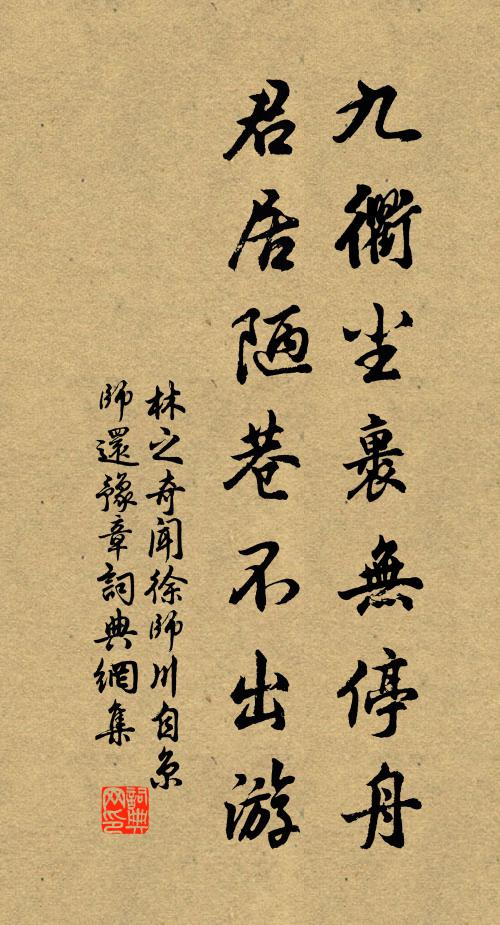 九衢尘裏無停舟
君居陋巷不出游
林之奇聞徐師川自京
師還豫章詞典網集
詞典網印